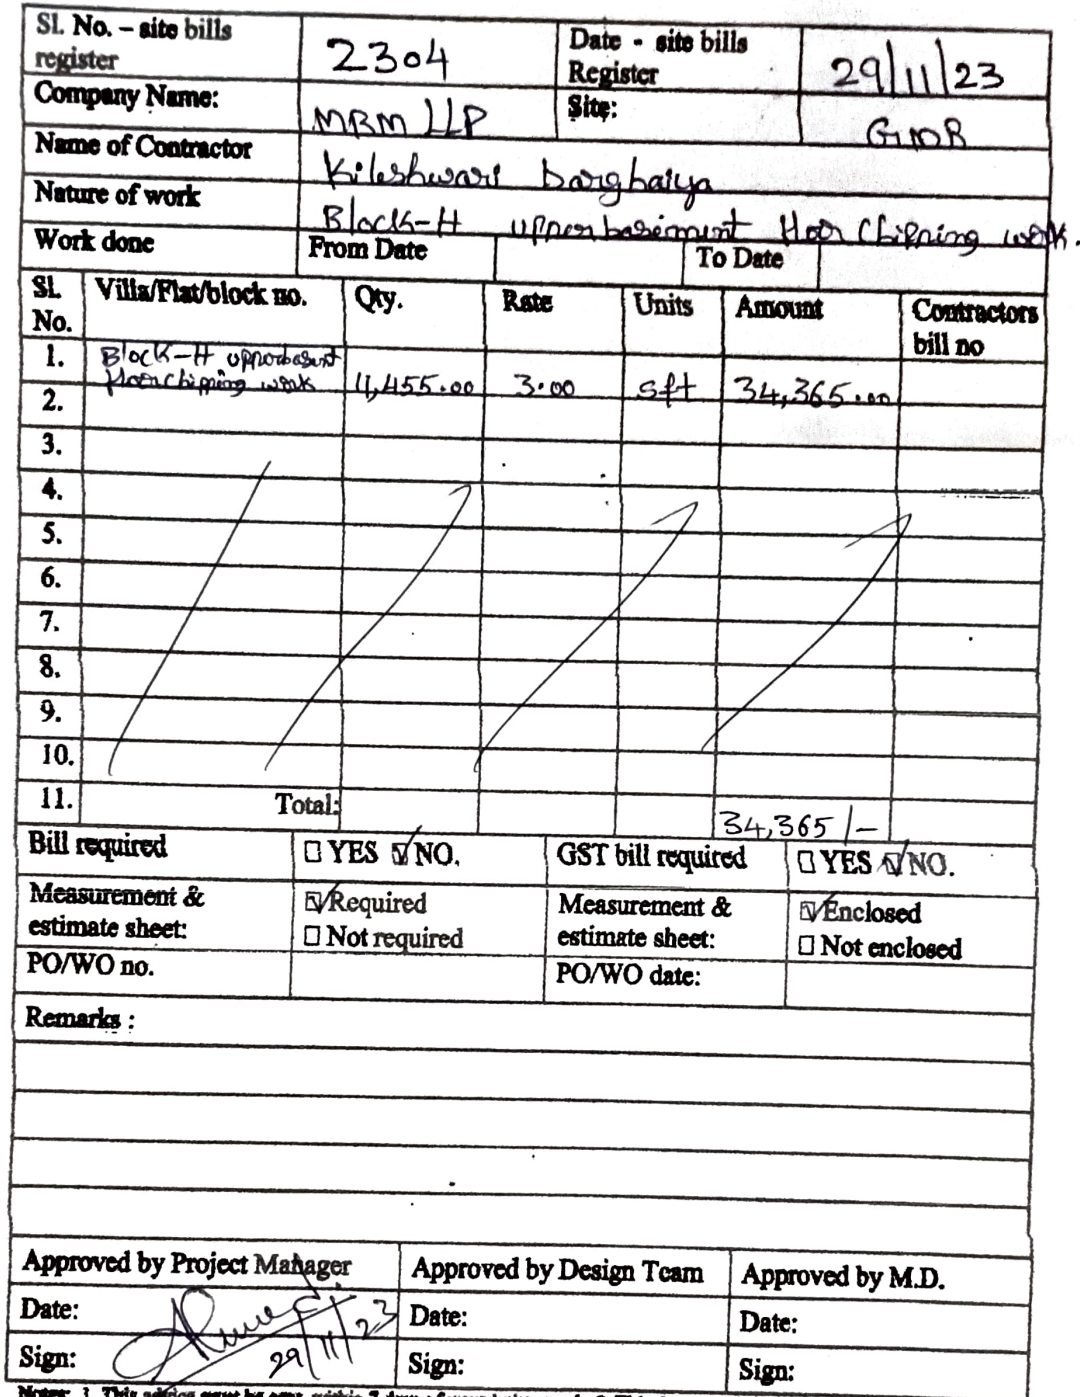 Sl. No. – site bills register 2304 Date - site bills Register 29/11/23
Company Name: MRM LLP Site: GMR
Name of Contractor Kileshwari Darghaiya
Nature of work Block-H upper basement floor chipping work.
Work done From Date To Date
Sl. No. Villa/Flat/block no. Qty. Rate Units Amount Contractors bill no
1. Block-H upperbasent
floor chipping work 11,455.00 3.00 sft 34,365.00
2.
3.
4.
5.
6.
7.
8.
9.
10.
11. Total: 34,365/-
Bill required ☐ YES ☑ NO. GST bill required ☐ YES ☑ NO.
Measurement & estimate sheet: ☑ Required ☐ Not required Measurement & estimate sheet: ☑ Enclosed ☐ Not enclosed
PO/WO no. PO/WO date:
Remarks :
Approved by Project Manager Approved by Design Team Approved by M.D.
Date: Date: Date:
Sign: 29/11/23 Sign: Sign: